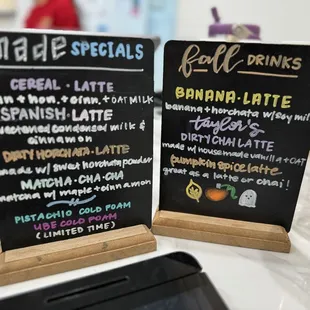 made SPECIALS
CEREAL · LATTE
+ hon. + cinn. + OAT MILK
SPANISH · LATTE
sweetened condensed milk &
cinnamon
DIRTY HORCHATA · LATTE
made w/ sweet horchata powder
MATCHA · CHA · CHA
matcha w/ maple + cinnamon
PISTACHIO COLD FOAM
UBE COLD FOAM
(LIMITED TIME)
fall DRINKS
BANANA · LATTE
banana + horchata w/ soy milk
taylor's
DIRTY CHAI LATTE
made w/ housemade vanilla + OAT
pumpkin spice latte
great as a latte or chai!